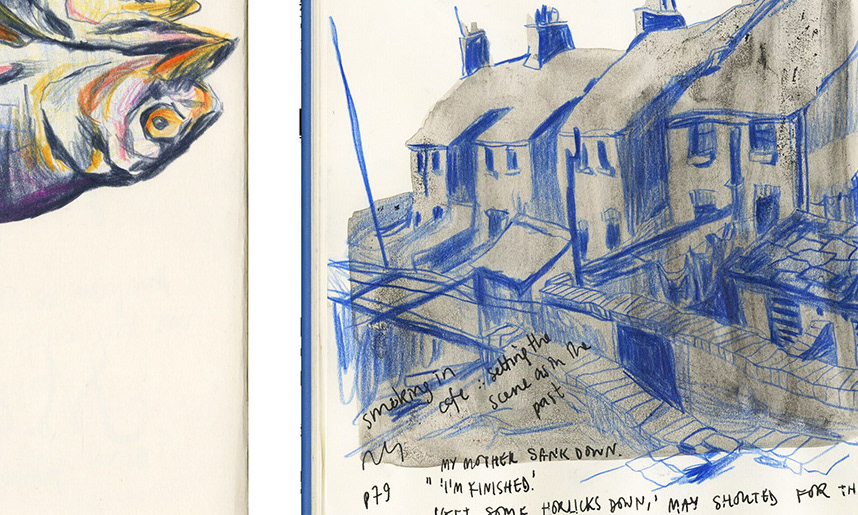 smoking in
cafe :: setting the
scene as in the
past
MY MOTHER SANK DOWN.
p79 " 'I'M FINISHED.'
'GET SOME HORLICKS DOWN,' MAY SHOUTED FOR TH